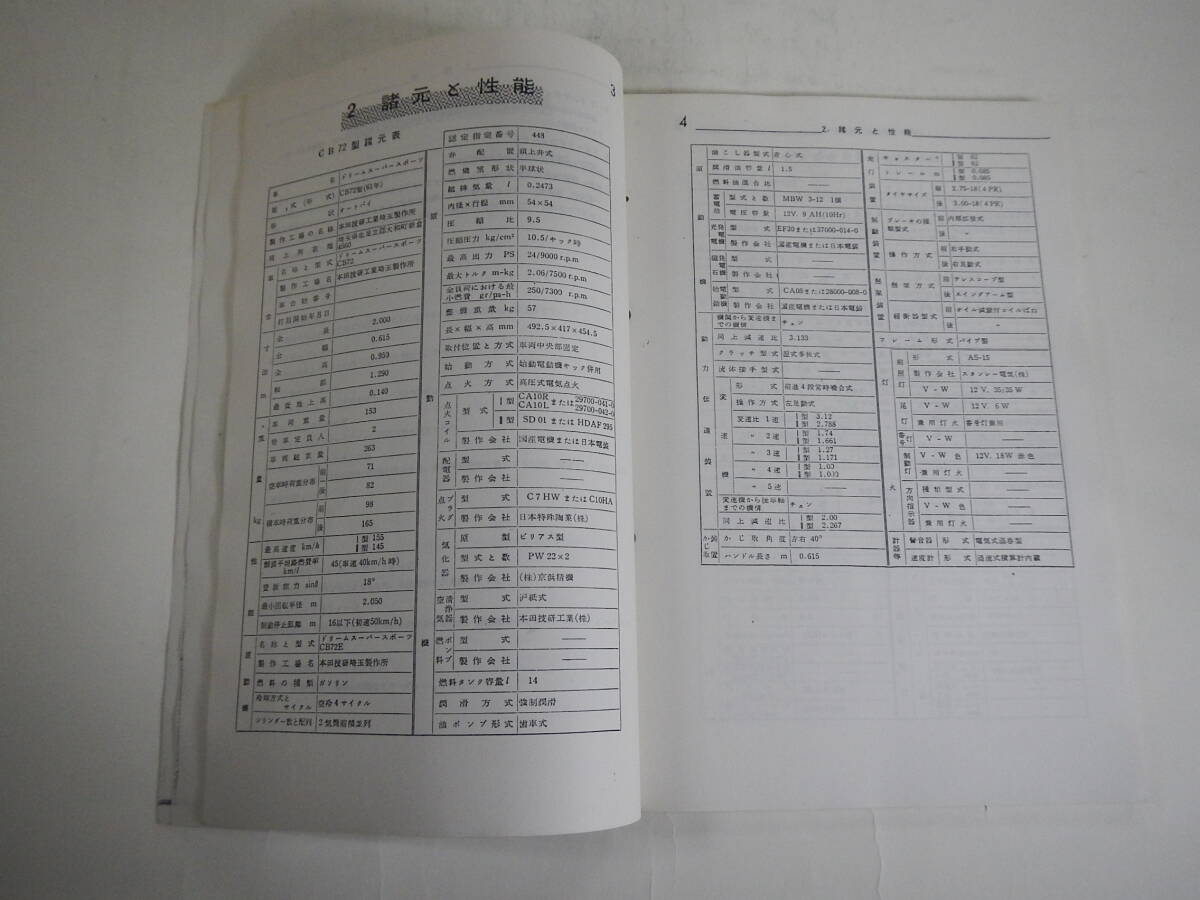 2 諸元と性能
3
CB72型諸元表
車名 ドリームスーパースポーツ
型式(年式) CB72型(61年)
形状 オートバイ
製作工場の名称 本田技研工業埼玉製作所
同上所在地 埼玉県北足立郡大和町新倉
名称と型式 ドリームスーパースポーツ
CB72
製作工場名 本田技研工業埼玉製作所
車台始番号
打刻開始年月日
全長 2.000
全幅 0.615
全高 0.950
軸距 1.290
最低地上高 0.140
車両重量 153
乗車定員人 2
車両総重量 263
空車時荷重分布 前 71
後 82
積車時荷重分布 前 98
後 165
最高速度 km/h Ⅰ型 155
Ⅱ型 145
舗装平坦路燃費率 km/l 45(車速40km/h時)
登坂能力 sinθ 18°
最小回転半径 m 2.050
制動停止距離 m 16以下(初速50km/h)
名称と型式 ドリームスーパースポーツ
CB72E
製作工場名 本田技研埼玉製作所
燃料の種類 ガソリン
冷却方式とサイクル 空冷4サイクル
シリンダー数と配列 2気筒前傾並列
認定指定番号 443
弁配置 頭上弁式
燃焼室形状 半球状
総排気量 l 0.2473
内径×行程 mm 54×54
圧縮比 9.5
圧縮圧力 kg/cm² 10.5/キック時
最高出力 PS 24/9000r.p.m
最大トルク m-kg 2.06/7500r.p.m
全負荷における最小燃費 gr/ps-h 250/7300 r.p.m
整備重量 kg 57
長×幅×高 mm 492.5×417×454.5
取付位置と方式 車両中央部固定
始動方式 始動電動機キック併用
点火方式 高圧式電気点火
点火コイル 型式 Ⅰ型 CA10R CA10L または 29700-041-0 29700-042-0
Ⅱ型 SD01またはHDAF295
製作会社 国産電機または日本電装
配電器 型式 ——
製作会社 ——
点火プラグ 型式 C7HWまたはC10HA
製作会社 日本特殊陶業(株)
気化器 原型 ビリアス型
型式と数 PW22×2
製作会社 (株)京浜精機
空気清浄器 型式 沪紙式
製作会社 本田技研工業(株)
燃料ポンプ 型式 ——
製作会社 ——
燃料タンク容量 l 14
潤滑方式 強制潤滑
油ポンプ形式 歯車式
4
2. 諸元と性能
油こし器型式 遠心式
潤滑油容量 l 1.5
燃料油混合比 ——
蓄電池 型式と数 MBW 3-12 1個
電圧容量 12V. 9AH(10Hr)
充発電機 型式 EF20または37000-014-0
製作会社 国産電機または日本電装
磁石発電機 型式 ——
製作会社 ——
始動電動機 型式 CA05または28000-008-0
製作会社 国産電機または日本電装
機関から変速機までの機構 チェン
同上減速比 3.133
クラッチ型式 湿式多板式
流体接手型式 ——
形式 前進4段常時噛合式
操作方式 左足動式
変速比 1速 Ⅰ型 3.12
Ⅱ型 2.788
〃 2速 Ⅰ型 1.74
Ⅱ型 1.661
〃 3速 Ⅰ型 1.27
Ⅱ型 1.171
〃 4速 Ⅰ型 1.00
Ⅱ型 1.000
〃 5速 ——
変速機から後車軸までの機構 チェン
同上減速比 Ⅰ型 2.00
Ⅱ型 2.267
かじ取装置 かじ取角度 左右40°
ハンドル長さ m 0.615
キャスター° Ⅰ型 62
Ⅱ型 62
トレール m Ⅰ型 0.085
Ⅱ型 0.085
タイヤサイズ 前 2.75-18(4PR)
後 3.00-18(4PR)
ブレーキの種類型式 前 内部拡張式
後 〃
操作方式 前 右手動式
後 右足動式
懸架方式 前 テレスコープ型
後 スイングアーム型
緩衝器型式 前 オイル減衰付コイルばね
後 〃
フレーム形式 パイプ型
前照灯 形式 AS-15
製作会社 スタンレー電気(株)
V-W 12V. 35/35W
尾灯 V-W 12V. 6W
兼用灯火 番号灯兼用
番号灯 V-W ——
制動灯 V-W色 12V. 18W 赤色
兼用灯火 ——
方向指示器 種類型式 ——
V-W色 ——
兼用灯火 ——
計器等 警音器 形式 電気式渦巻型
速度計 形式 渦流式積算計内蔵